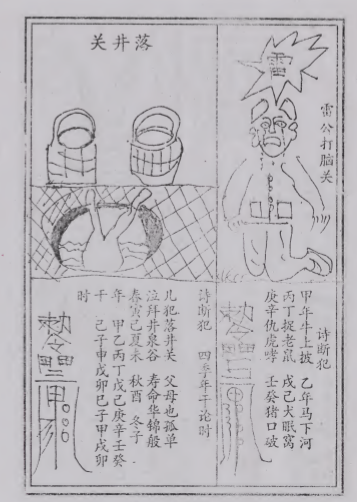 雷
雷公打脑关
诗断犯
甲年牛上披 乙年马下河
丙丁捉老鼠 戊己犬眠窝
庚辛仇虎哮 壬癸猪口破
落井关
诗断犯 四季年干论时
儿犯落井关 父母也孤单
泣拜井泉谷 寿命华锦般
春寅己夏未 秋酉 冬子
年 甲乙丙丁戊己庚辛壬癸
干 己子申戌卯巳子甲戌卯
时